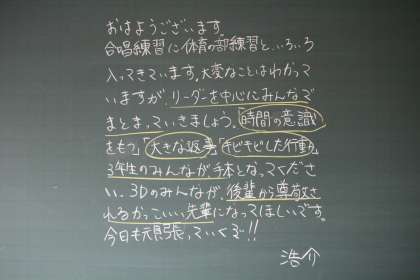 おはようございます。
合唱練習に体育の部練習と、いろいろ
入ってきています。大変なことはわかって
いますが、リーダーを中心にみんなで
まとまっていきましょう。「時間の意識
をもつ」「大きな返事」「キビキビした行動」。
3年生のみんなが手本となってくださ
い。3Dのみんなが、後輩から尊敬さ
れるかっこいい先輩になってほしいです。
今日も頑張っていくぞ!!
浩介